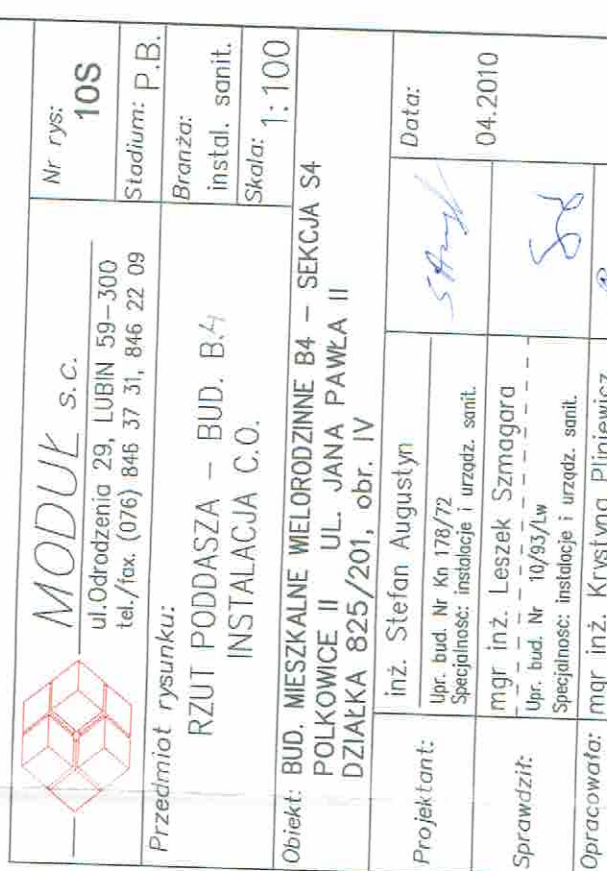 MODUŁ s.c.
ul.Odrodzenia 29, LUBIN 59-300
tel./fax. (076) 846 37 31, 846 22 09
Nr rys:
10S
Stadium: P.B.
Przedmiot rysunku:
RZUT PODDASZA - BUD. B.4
INSTALACJA C.O.
Branża:
instal. sanit.
Skala: 1:100
Obiekt: BUD. MIESZKALNE WIELORODZINNE B4 - SEKCJA S4
POLKOWICE II UL. JANA PAWŁA II
DZIAŁKA 825/201, obr. IV
Projektant:
inż. Stefan Augustyn
Upr. bud. Nr Kn 178/72
Specjalność: instalacje i urządz. sanit.
Data:
04.2010
Sprawdził:
mgr inż. Leszek Szmagara
Upr. bud. Nr 10/93/Lw
Specjalność: instalacje i urządz. sanit.
Opracowała: mgr inż. Krystyna Pliniewicz